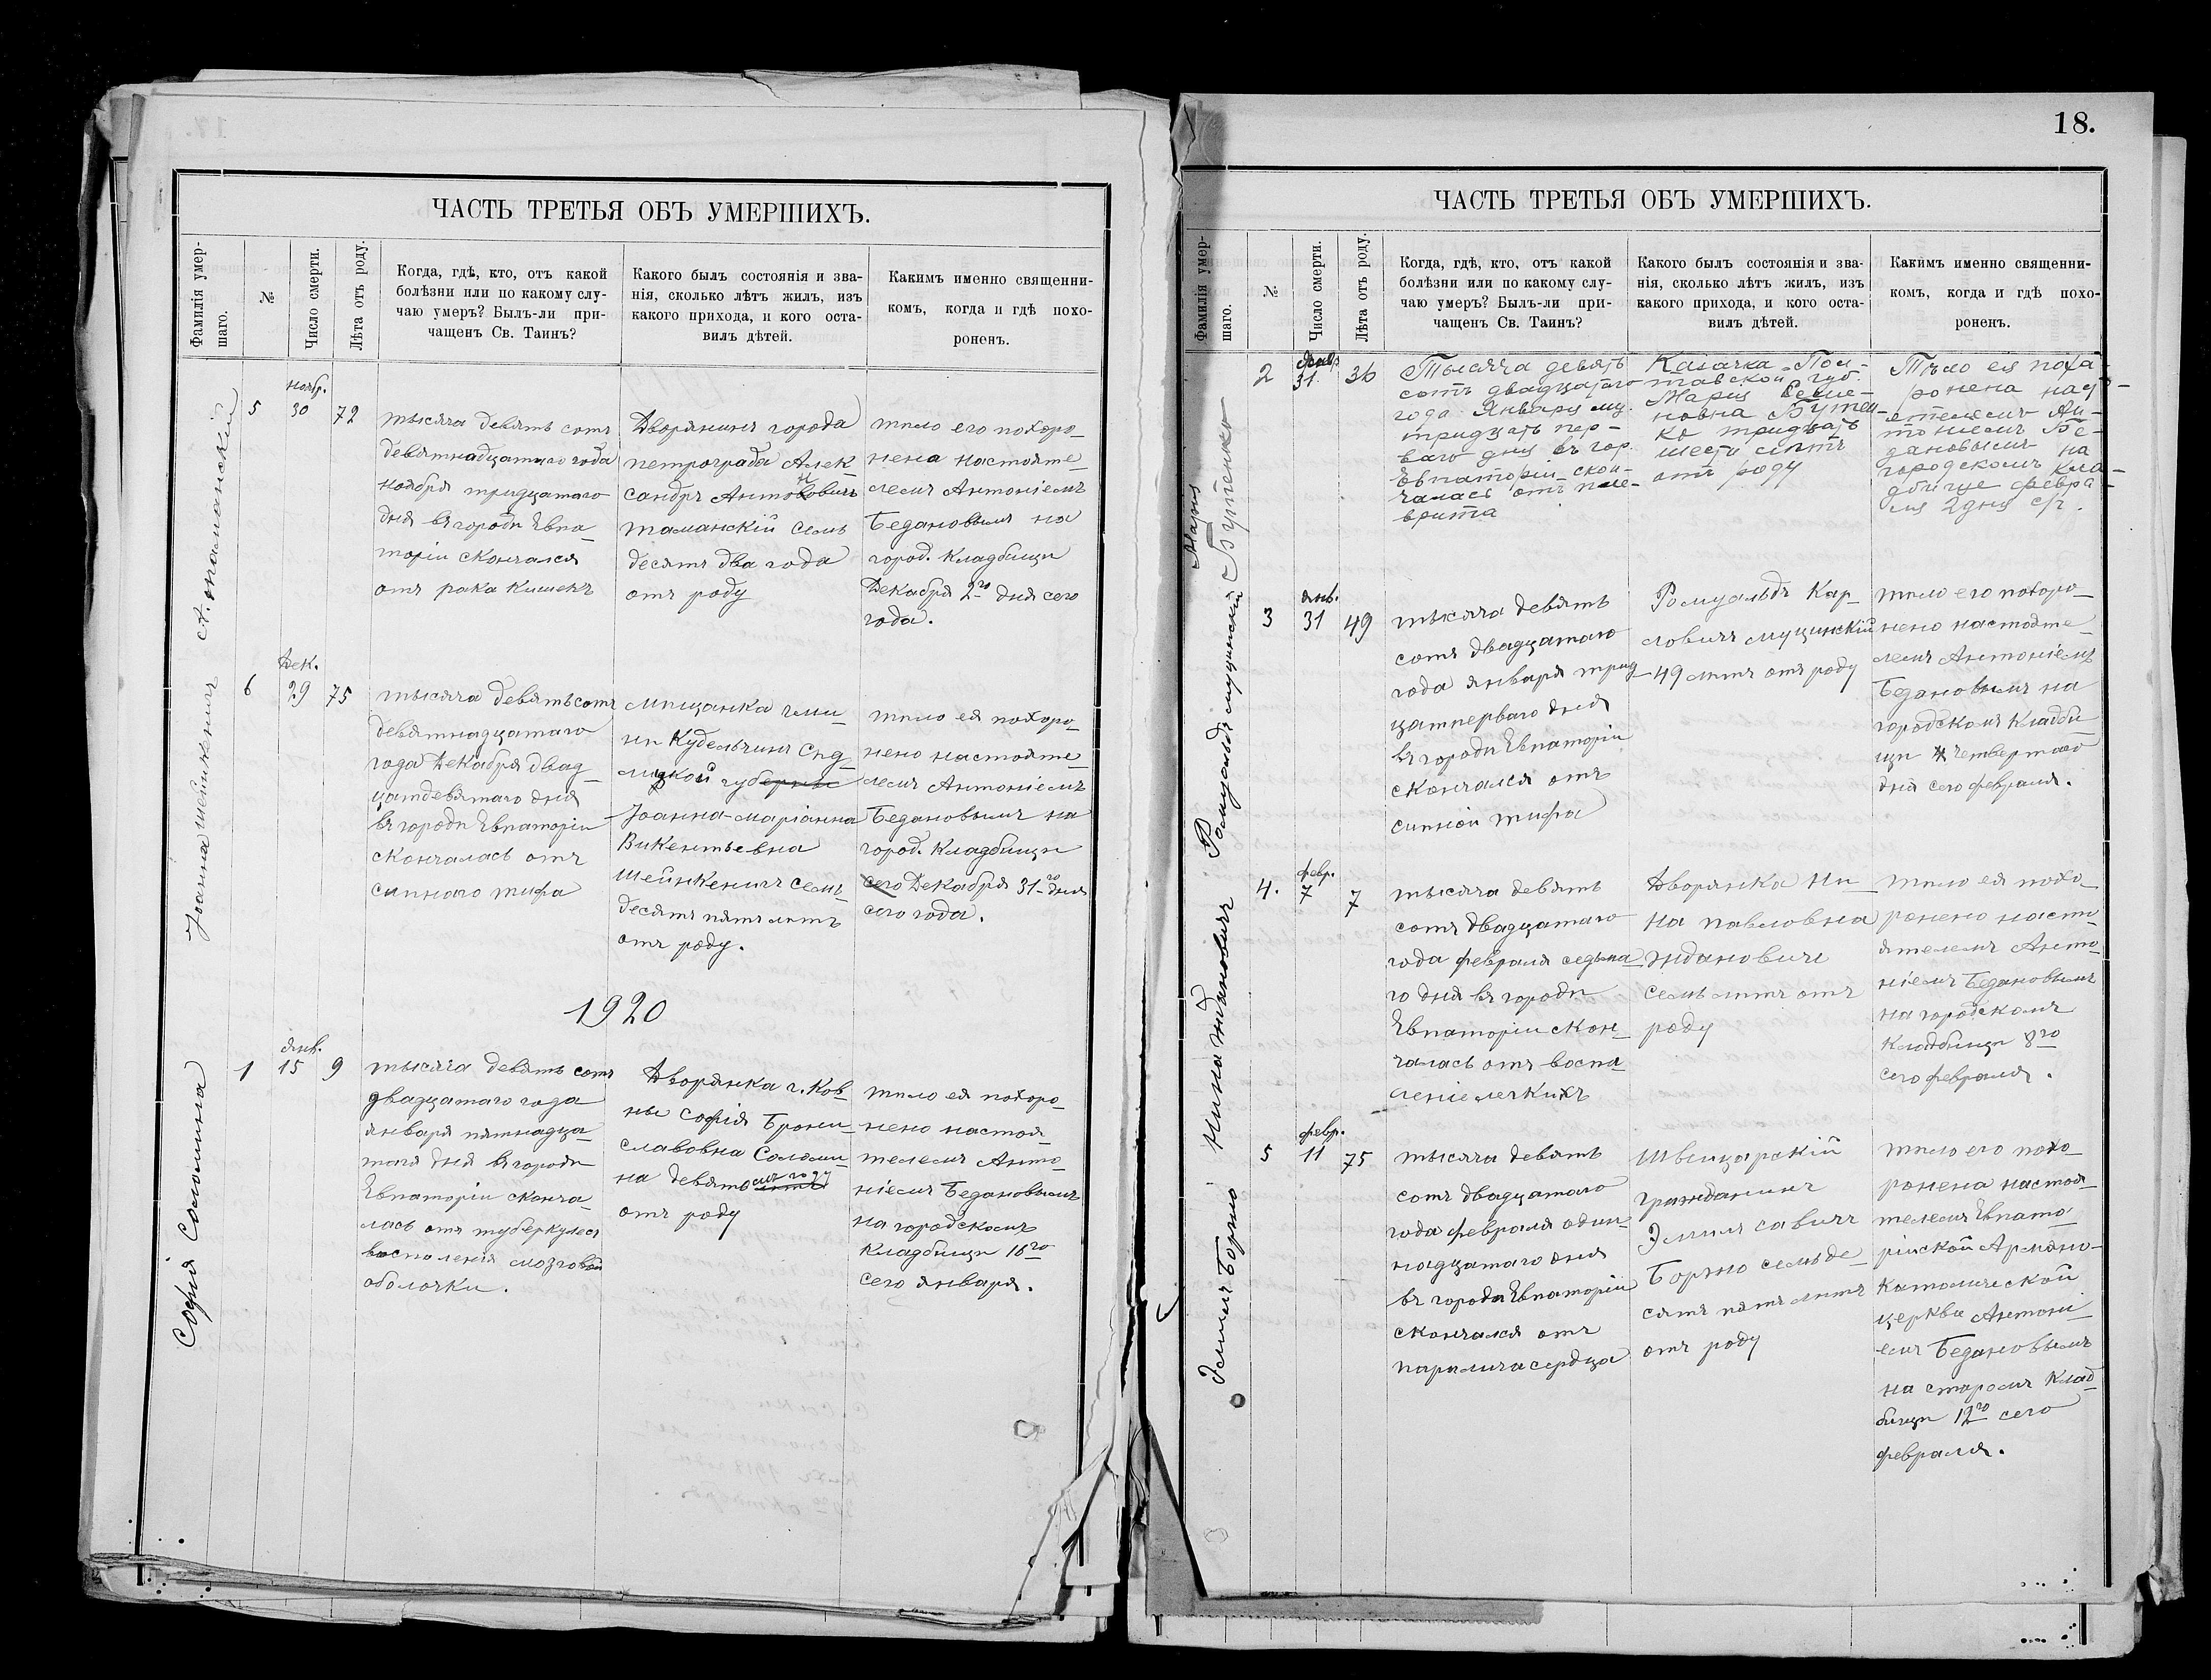 ЧАСТЬ ТРЕТЬЯ ОБЪ УМЕРШИХЪ.
Фамилія умер-
шаго.
№
Число смерти.
Лѣта отъ роду.
Когда, гдѣ, кто, отъ какой
болѣзни или по какому слу-
чаю умеръ? Былъ-ли при-
чащенъ Св. Таинъ?
Какого былъ состоянія и зва-
нія, сколько лѣтъ жилъ, изъ
какого прихода, и кого оста-
вилъ дѣтей.
Какимъ именно священни-
комъ, когда и гдѣ похо-
роненъ.
А. Таманскій
5
ноябр.
30
72
тысяча девять сотъ
девятнадцатаго года
ноября тридцатаго
дня въ городѣ Евпа-
торіи скончался
отъ рака кишекъ
Дворянинъ города
петрограда Алек
сандръ Антоновичъ
таманскій семь
десятъ два года
отъ роду
тѣло его похоро-
нена настояте-
лемъ Антоніемъ
Бедановымъ на
город. кладбищѣ
Декабря 2го дня сего
года.
Іоанна Шейнкенигъ
6
Дек.
29
75
тысяча девятьсотъ
девятнадцатаго
года Декабря двад-
цатдевятаго дня
въ городѣ Евпаторіи
скончалась отъ
сыпного тифа
мѣщанка гми-
ны Кудельчинъ Сѣд-
лцкой губерніи
Іоанна-маріанна
Викентьевна
Шейнкенигъ семь
десятъ пять лѣтъ
отъ роду.
тѣло ея похоро-
нено настояте-
лемъ Антоніемъ
Бедановымъ на
город. кладбищѣ
сего Декабря 31-го дня
сего года.
1920
Софія Соломина
1
янв.
15
9
тысяча девять сотъ
двадцатаго года
января пятнадца-
таго дня въ городѣ
Евпаторіи сконча-
лась отъ туберкулез
воспаленія мозговой
оболочки.
Дворянка г. Ков-
ны Софія Брони-
славовна Соломи-
на девято
отъ роду
тѣло ея похоро-
нено настоя-
телемъ Анто-
ніемъ Бедановымъ
на городскомъ
кладбищѣ 16го
сего января.
18.
ЧАСТЬ ТРЕТЬЯ ОБЪ УМЕРШИХЪ.
Фамилія умер-
шаго.
№
Число смерти.
Лѣта отъ роду.
Когда, гдѣ, кто, отъ какой
болѣзни или по какому слу-
чаю умеръ? Былъ-ли при-
чащенъ Св. Таинъ?
Какого былъ состоянія и зва-
нія, сколько лѣтъ жилъ, изъ
какого прихода, и кого оста-
вилъ дѣтей.
Какимъ именно священни-
комъ, когда и гдѣ похо-
роненъ.
Марія
Бутенко
2
31
36
Тысяча девять
сотъ двадцатаго
года Января мц.
тридцать пер-
ваго дня въ гор.
Евпаторіи скон-
чалась отъ пле-
врита
Казачка Пол-
тавской губ.
Марія Семе-
новна Бутен-
ко тридцать
шесть лѣтъ
отъ роду
Тѣло ея поха-
ронена наст-
ятелемъ Ан-
тоніемъ Бе-
дановымъ на
городскомъ кла-
дбище февра-
ля 2 дня с/г.
Ромуальдъ мущинскій
3
янв.
31
49
тысяча девять
сотъ двадцатаго
года января трид-
цатперваго дня
въ городѣ Евпаторіи
скончался отъ
сипной тифа
Ромуальдъ Кар-
ловичъ мущинскій
49 лѣтъ отъ роду
тѣло его похоро-
нено настояте-
лемъ Антоніемъ
Бедановымъ на
городскомъ кладби
щѣ четвертаго
дня сего февраля.
Нина Ждановичъ
4.
февр.
7
7
тысяча девять
сотъ двадцатаго
года февраля седьма-
го дня въ городѣ
Евпаторіи скон-
чалась отъ воспа-
леніе легкихъ
Дворянка Ни-
на павловна
Ждановичъ
семь лѣтъ отъ
роду
тѣло ея похо-
ронено насто-
ятелемъ Анто-
ніемъ Бедановымъ
на городскомъ
кладбищѣ 8го
сего февраля.
Эмиль Боржо
5
февр.
11
75
тысяча девять
сотъ двадцатаго
года февраля один-
надцатаго дня
въ городѣ Евпаторіи
скончался отъ
паралича сердца
Швейцарскій
гражданинъ
Эмиль савичъ
Боржо семьде-
сятъ пять лѣтъ
отъ роду
тѣло его похо-
ронена настоя-
телемъ Евпато-
рійской Армяно-
католической
церкви Антоні-
емъ Бедановымъ
на старомъ клад-
бищѣ 12го сего
февраля.